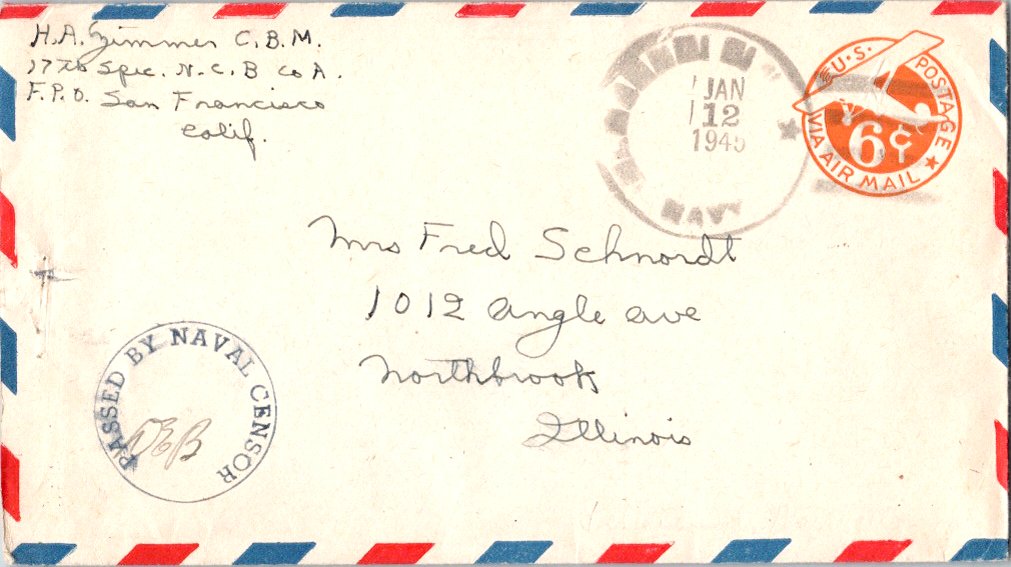 H.A. Zimmer C.B.M.
17th Spec. N.C.B Co A.
F.P.O. San Francisco
Calif.
JAN
12
1945
NAVY
U.S. POSTAGE
6¢
VIA AIR MAIL
Mrs Fred Schnordt
1012 Angle ave
Northbrook
Illinois
PASSED BY NAVAL CENSOR
DEB